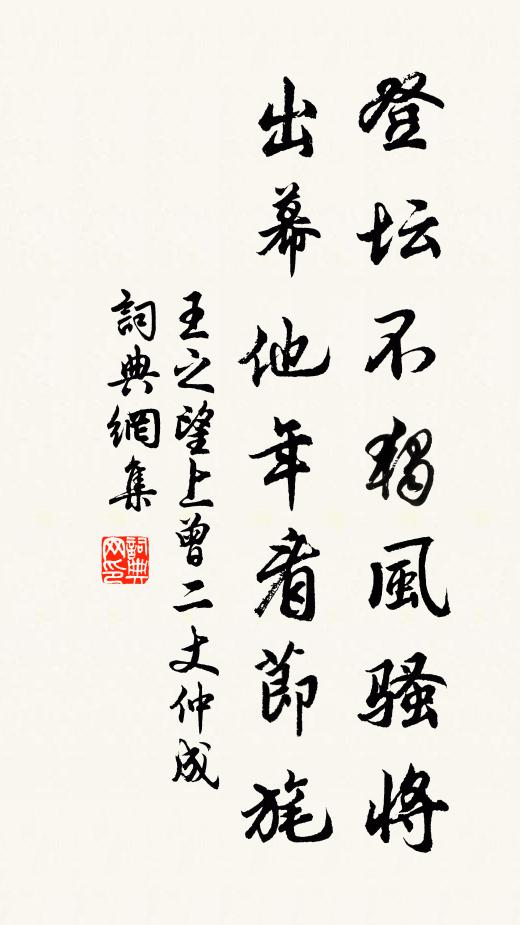 登坛不獨風騷將
出幕他年看節旄
王之望上曾二丈仲成
詞典網集
詞典網印